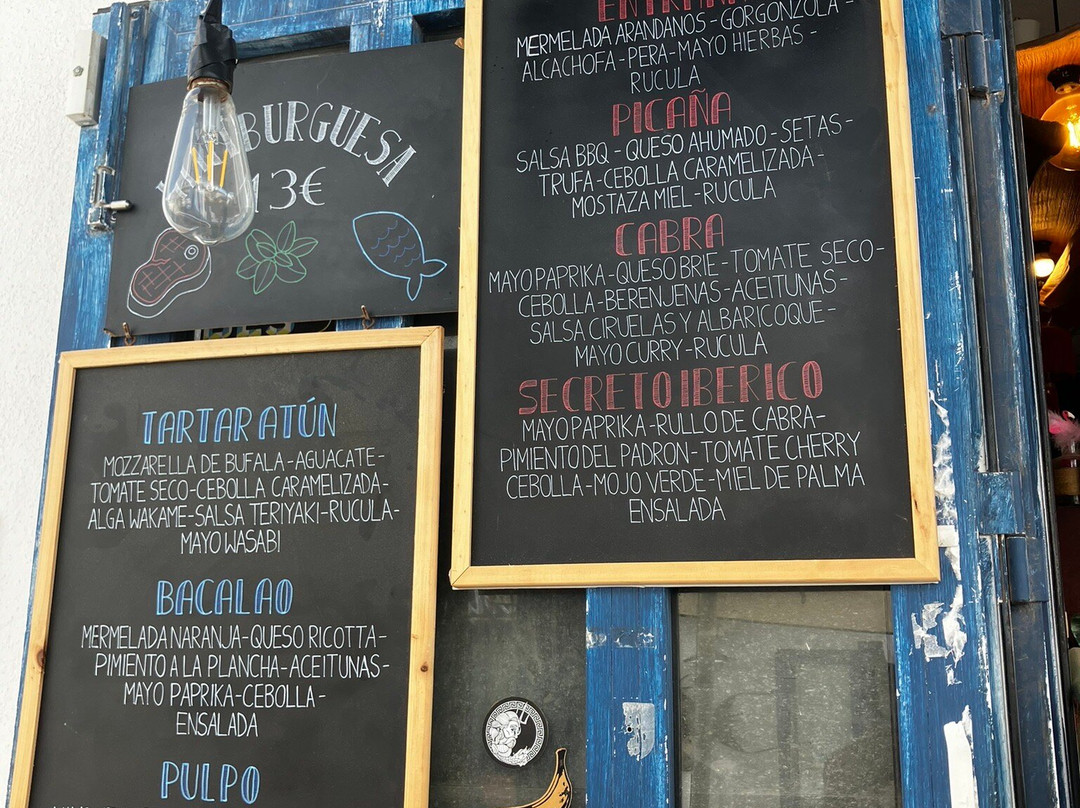 BURGUESA
13€
TARTAR ATÚN
MOZZARELLA DE BUFALA-AGUACATE-
TOMATE SECO-CEBOLLA CARAMELIZADA-
ALGA WAKAME-SALSA TERIYAKI-RUCULA-
MAYO WASABI
BACALAO
MERMELADA NARANJA-QUESO RICOTTA-
PIMIENTO A LA PLANCHA-ACEITUNAS-
MAYO PAPRIKA-CEBOLLA-
ENSALADA
PULPO
MERMELADA ARANDANOS-GORGONZOLA-
ALCACHOFA-PERA-MAYO HIERBAS-
RUCULA
PICAÑA
SALSA BBQ-QUESO AHUMADO-SETAS-
TRUFA-CEBOLLA CARAMELIZADA-
MOSTAZA MIEL-RUCULA
CABRA
MAYO PAPRIKA-QUESO BRIE-TOMATE SECO-
CEBOLLA-BERENJENAS-ACEITUNAS-
SALSA CIRUELAS Y ALBARICOQUE-
MAYO CURRY-RUCULA
SECRETO IBERICO
MAYO PAPRIKA-RULLO DE CABRA-
PIMIENTO DEL PADRON-TOMATE CHERRY
CEBOLLA-MOJO VERDE-MIEL DE PALMA
ENSALADA